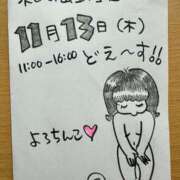 11月13日(木)
11:00-16:00 どえ〜す!!
よろちんこ♥